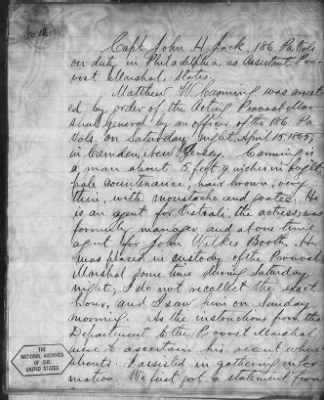 No. 18.
Capt. John H. Jack, 186 Pa Vols.
on duty in Philadelphia, as Assistant Pro-
vost Marshal, states,
Matthew W. Canning was arrest-
ed by order of the Acting Provost Mar-
shal General by an officer of the 186 Pa
Vols. on Saturday night, April 15, 1865,
in Camden, New Jersey. Canning is
a man about 5 feet 9 inches in height,
pale countenance, hair brown, very
thin, with moustache and goatee. He
is an agent for Vestvali, the actress; was
formerly manager and at one time
agent for John Wilkes Booth. He
was placed in custody of the Provost
Marshal some time during Saturday
night; I do not recollect the exact
hour, and I saw him on Sunday
morning. As the instructions from the
Department to the Provost Marshal
were to ascertain his recent where
abouts I assisted in gathering infor
mation. We just got a statement from
THE
NATIONAL ARCHIVES
OF THE
UNITED STATES